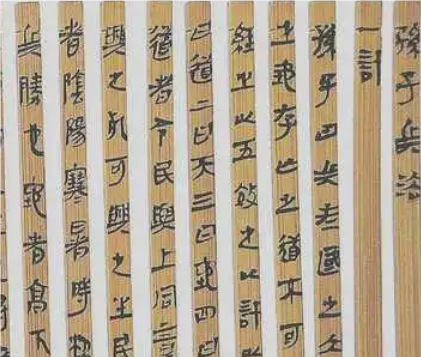 孫子兵法
一計
孫子曰兵者國之大
之地存亡之道不可
經之以五效之以計
曰道二曰天三曰地四曰
道者令民與上同意
與之死可與之生民
者陰陽寒暑時制
兵勝也地者高下